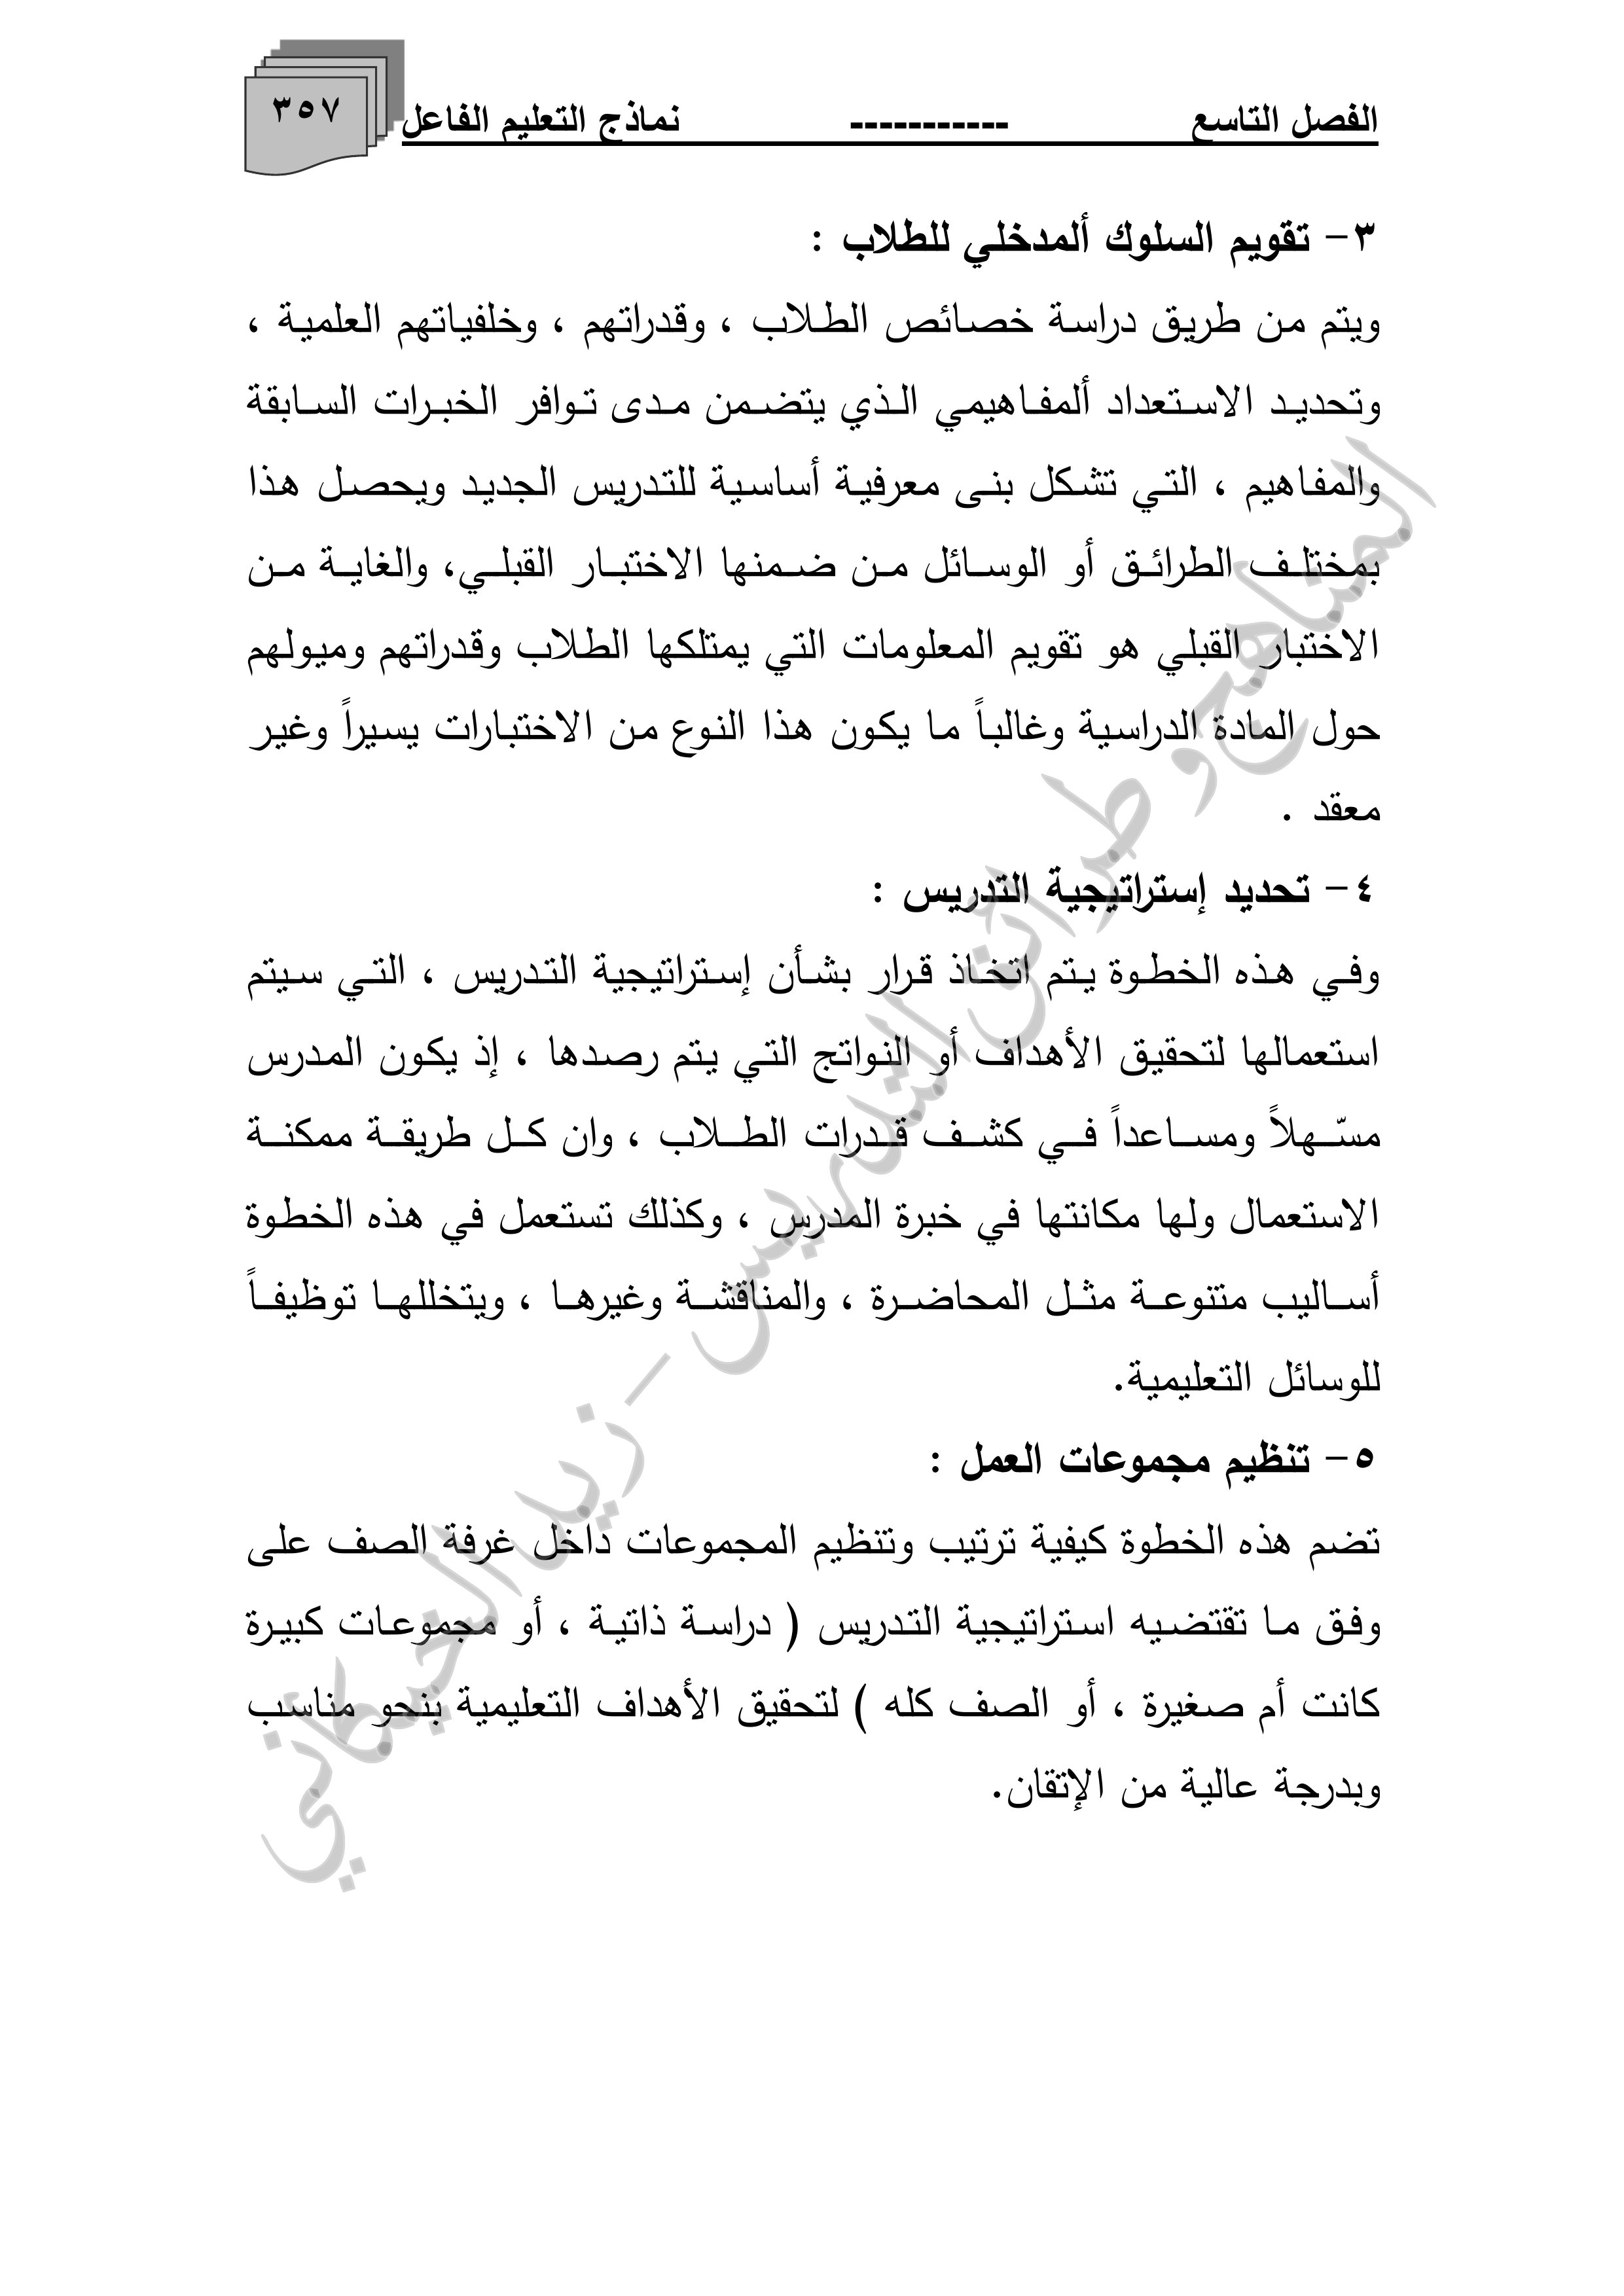 الفصل التاسع ----------- نماذج التعليم الفاعل ٣٥٧
٣- تقويم السلوك ألمدخلي للطلاب :
ويتم من طريق دراسة خصائص الطلاب ، وقدراتهم ، وخلفياتهم العلمية ،
وتحديد الاستعداد ألمفاهيمي الذي يتضمن مدى توافر الخبرات السابقة
والمفاهيم ، التي تشكل بنى معرفية أساسية للتدريس الجديد ويحصل هذا
بمختلف الطرائق أو الوسائل من ضمنها الاختبار القبلي، والغاية من
الاختبار القبلي هو تقويم المعلومات التي يمتلكها الطلاب وقدراتهم وميولهم
حول المادة الدراسية وغالباً ما يكون هذا النوع من الاختبارات يسيراً وغير
معقد .
٤- تحديد إستراتيجية التدريس :
وفي هذه الخطوة يتم اتخاذ قرار بشأن إستراتيجية التدريس ، التي سيتم
استعمالها لتحقيق الأهداف أو النواتج التي يتم رصدها ، إذ يكون المدرس
مسّهلاً ومساعداً في كشف قدرات الطلاب ، وان كل طريقة ممكنة
الاستعمال ولها مكانتها في خبرة المدرس ، وكذلك تستعمل في هذه الخطوة
أساليب متنوعة مثل المحاضرة ، والمناقشة وغيرها ، ويتخللها توظيفاً
للوسائل التعليمية.
٥- تنظيم مجموعات العمل :
تضم هذه الخطوة كيفية ترتيب وتنظيم المجموعات داخل غرفة الصف على
وفق ما تقتضيه استراتيجية التدريس ( دراسة ذاتية ، أو مجموعات كبيرة
كانت أم صغيرة ، أو الصف كله ) لتحقيق الأهداف التعليمية بنحو مناسب
وبدرجة عالية من الإتقان.
المناهج وطرائق التدريس - زيد الخيكاني